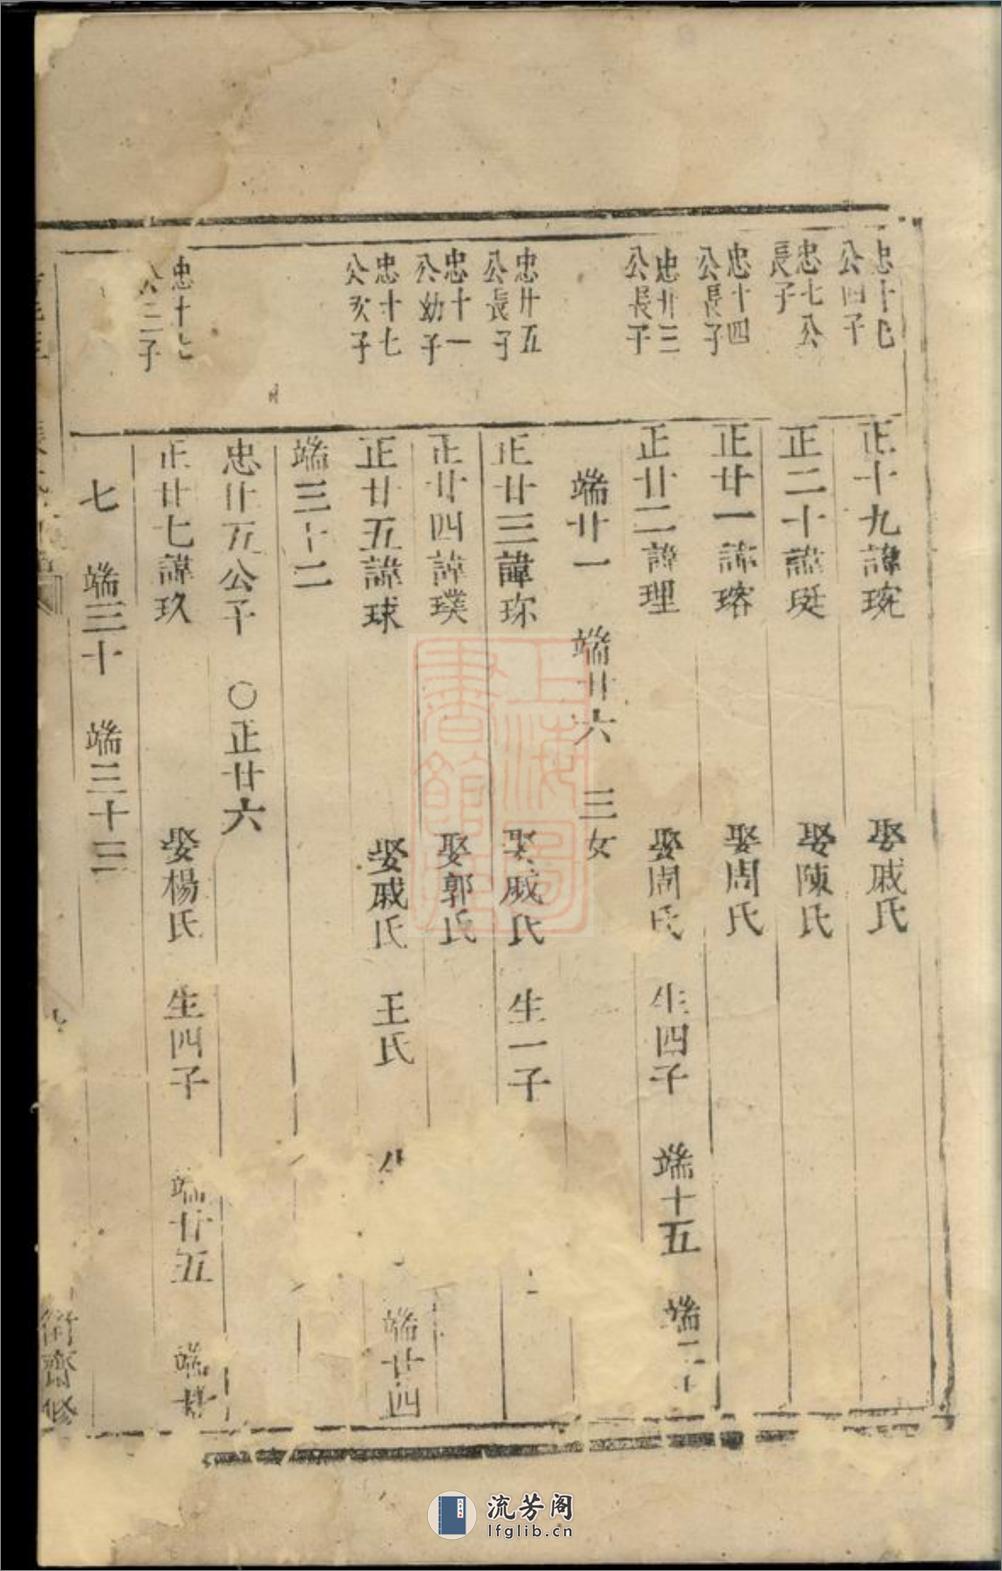 忠十七
公四子
正十九諱琬 娶戚氏
忠七公
長子
正二十諱珽 娶陳氏
忠十四
公長子
正廿一諱瑢 娶周氏
忠廿三
公長子
正廿二諱理 娶周氏 生四子 端十五 端二十
端廿一 端廿六 三女
忠廿五
公長子
正廿三諱珎 娶戚氏 生一子
忠十一
公幼子
正廿四諱璞 娶郭氏
忠十七
公次子
正廿五諱球 娶戚氏 王氏 端廿四
端三十二
忠廿五公子 ○正廿六
忠十七
公三子
正廿七諱玖 娶楊氏 生四子 端廿五 端廿
七 端三十 端三十三
齋修
上海圖書館藏
流芳阁
lfglib.cn